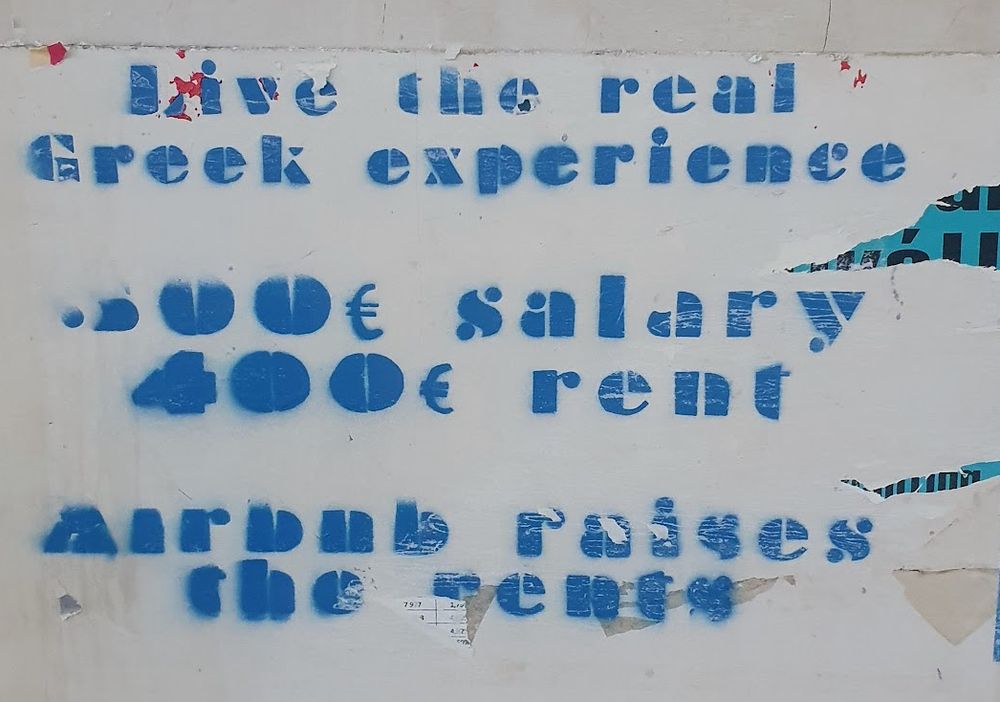 Live the real
Greek experience
500€ salary
400€ rent
Airbnb raises
the rents